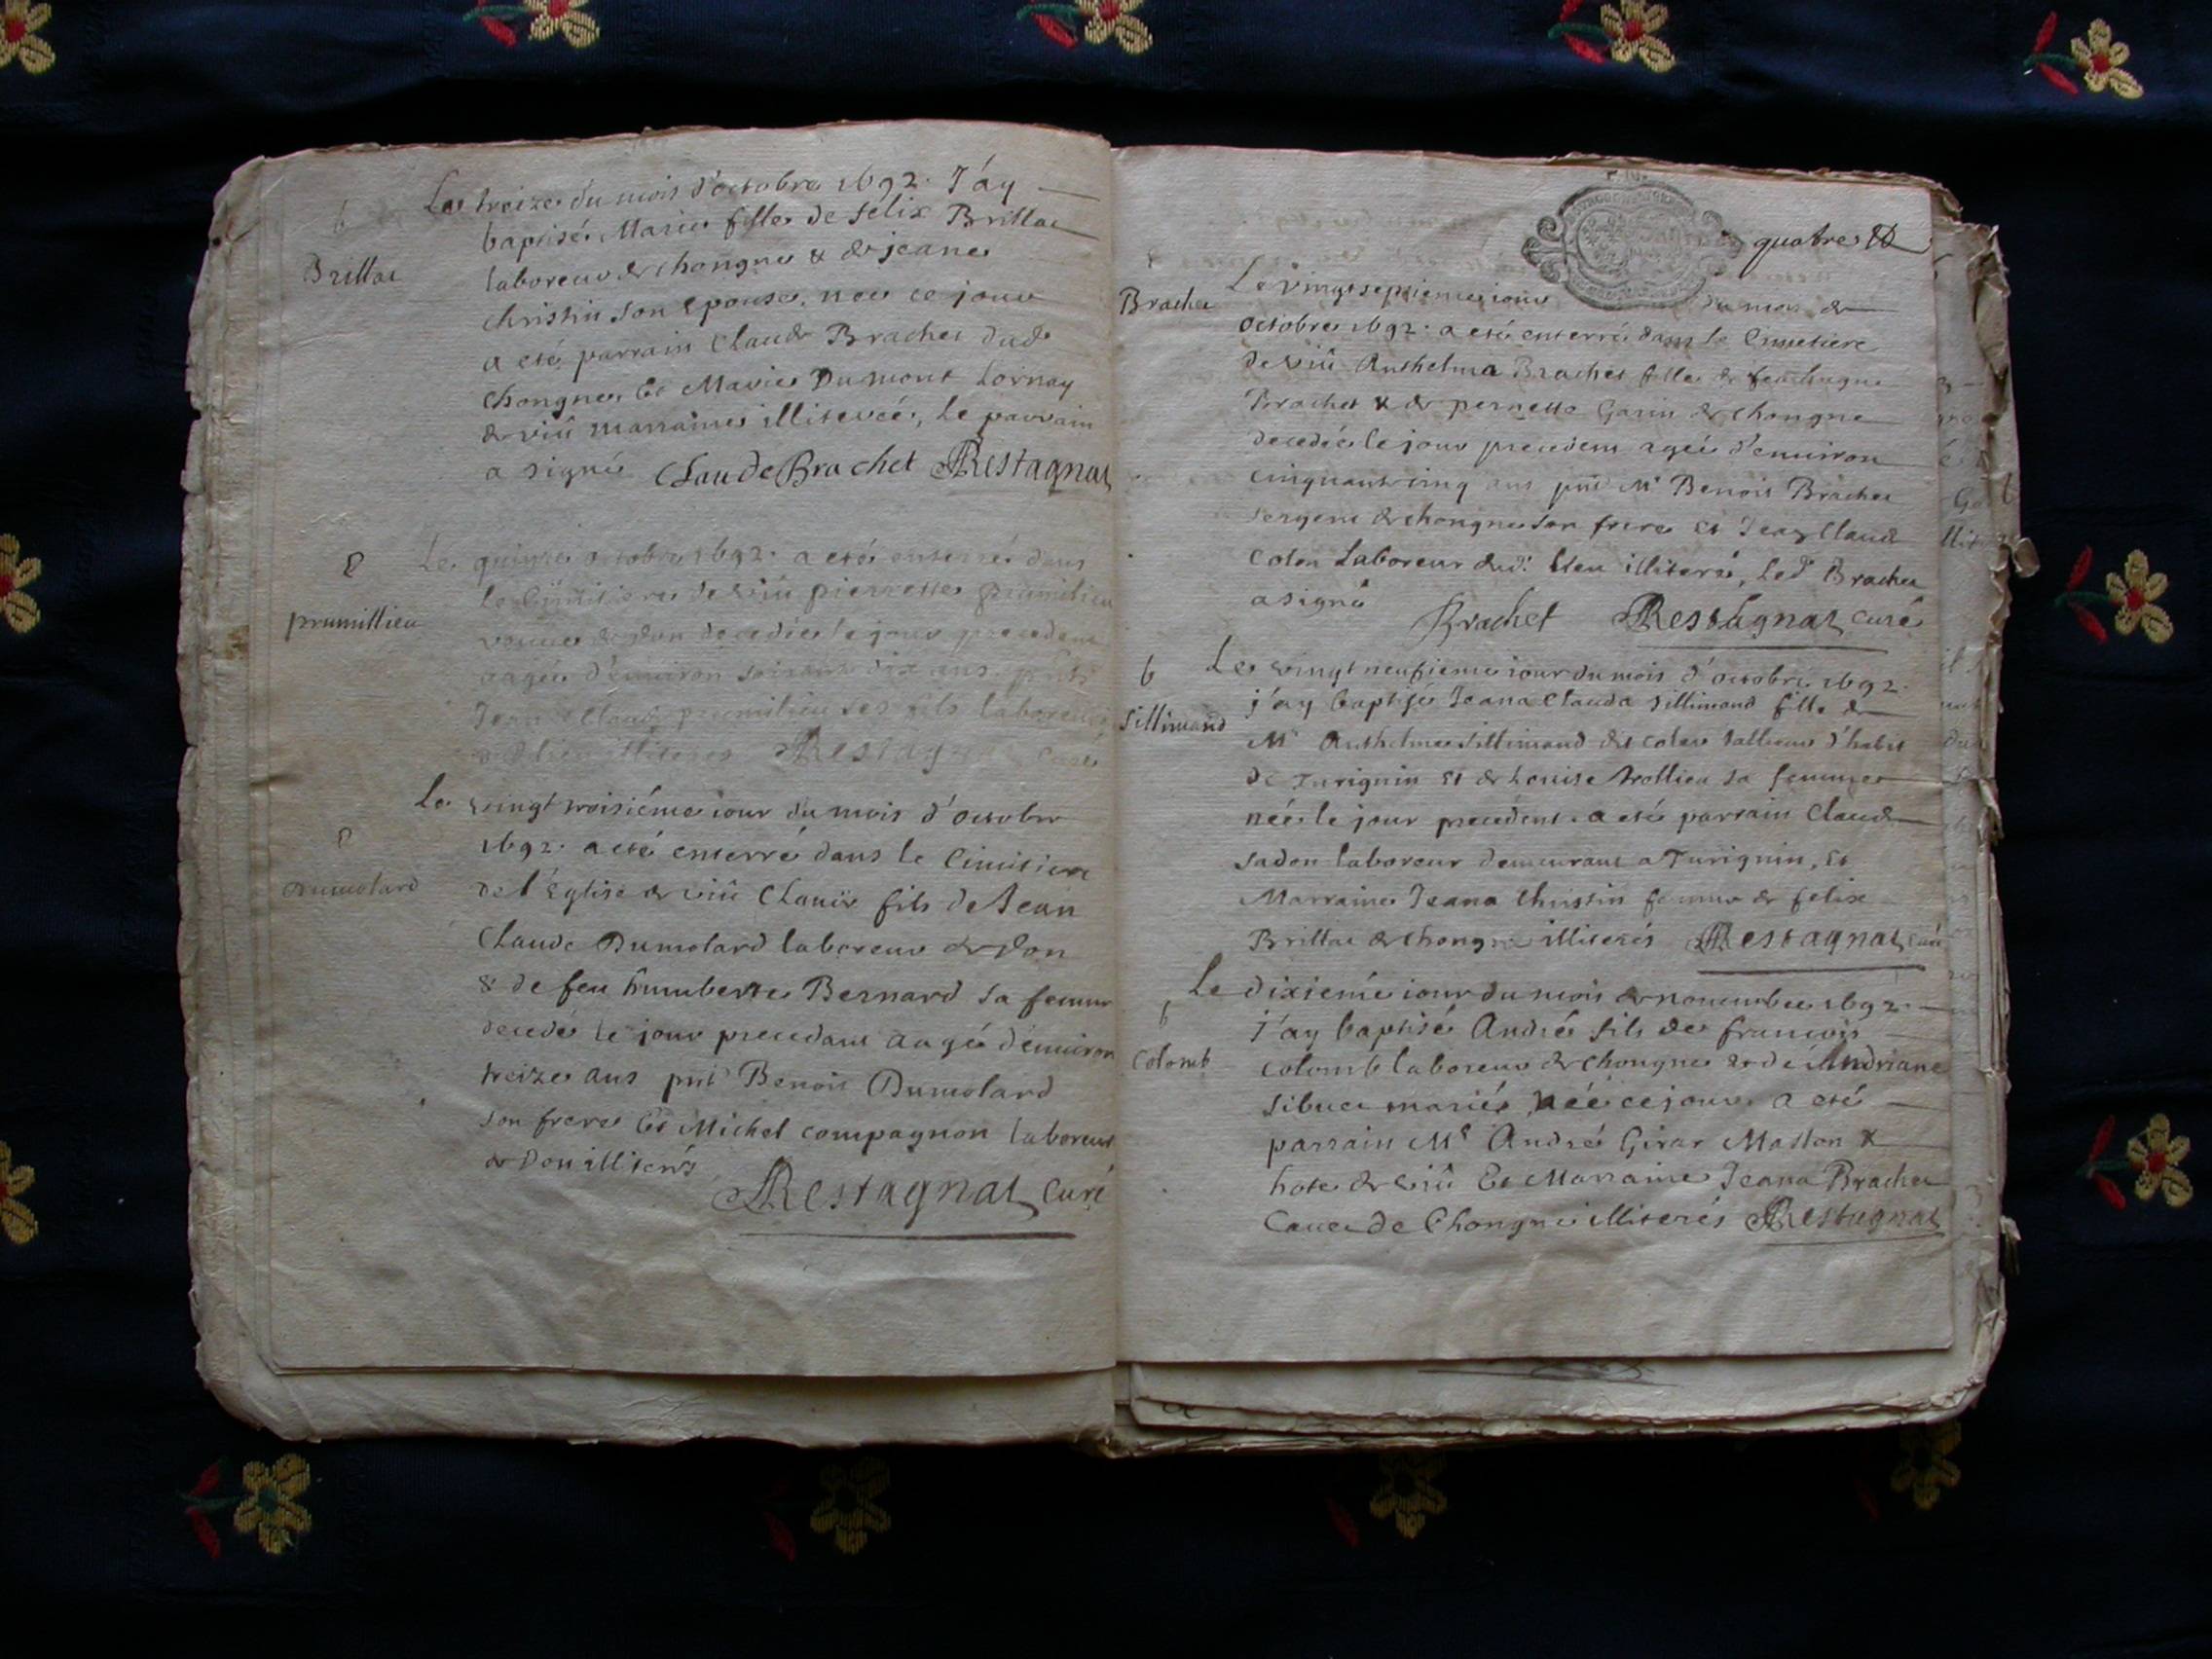 b
Brillat
Le treize du mois d'octobre 1692. J'ay
baptisé Marie fille de félix Brillat
laboreur de chongne & de jeane
christin son epouse, nee ce jour
a eté parrain Claude Brachet dud.
chongne Et Marie Dumont Lornay
de viû marraine illiterée, Le parrain
a signé Claude Brachet Restagnat
prumillieu
Le quinze octobre 1692. a eté enterré dans
le Cimitiere de viû pierrette prumilieu
veuve de don decedée le jour precedent
aagée d'environ soixante dix ans
Jean Claude prumilieu ses fils laboreur
illiteres Restagnat curé
Dumolard
Le vingt troisiéme iour du mois d'octobre
1692. a eté enterré dans le Cimitiere
de l'Eglise de viû fils de Jean
Claude Dumolard laboreur de Don
& de feu humberte Bernard sa femme
decedé le jour precedant aagé d'environ
treize ans pnt Benoit Dumolard
son frere Et Michel compagnon laboreur
de Don illiterés
Restagnat Curé
quatre
Brachet
Le vingtseptieme iour du mois de
octobre 1692. a eté enterré dans le Cimetiere
de viû Anthelma Brachet fille de feu
Brachet & de pernette Garin de Chongne
decedée le jour precedent agée d'environ
cinquante cinq ans pnt Mr Benoit Brachet
sergent de chongne son frere et Jean Claude
Colon Laboreur dud. lieu illiteré, Led Brachet
a signé Brachet Restagnat curé
b
Sillimand
Le vingt neufieme iour du mois d'octobre 1692.
j'ay baptisé Jeana Clauda Sillimand fille de
Mr Anthelme Sillimand dit tallieur d'habit
de Turignin et de Louise trollieu sa femme
née le jour precedent. a eté parrain Claude
sadon laboreur demeurant a Turignin, et
Marraine Jeana Christin femme de felix
Brillat de chongne illiterés Restagnat curé
Colomb
Le dixiemé iour du mois de novembre 1692.
j'ay baptisé André fils de francois
colomb laboreur de chongne & de Andriane
Sibuet mariés, néé ce jour. a eté
parrain Mr André Girar Masson &
hote de viû Et Marraine Jeana Brachet
de Chongne illiterés Restagnat